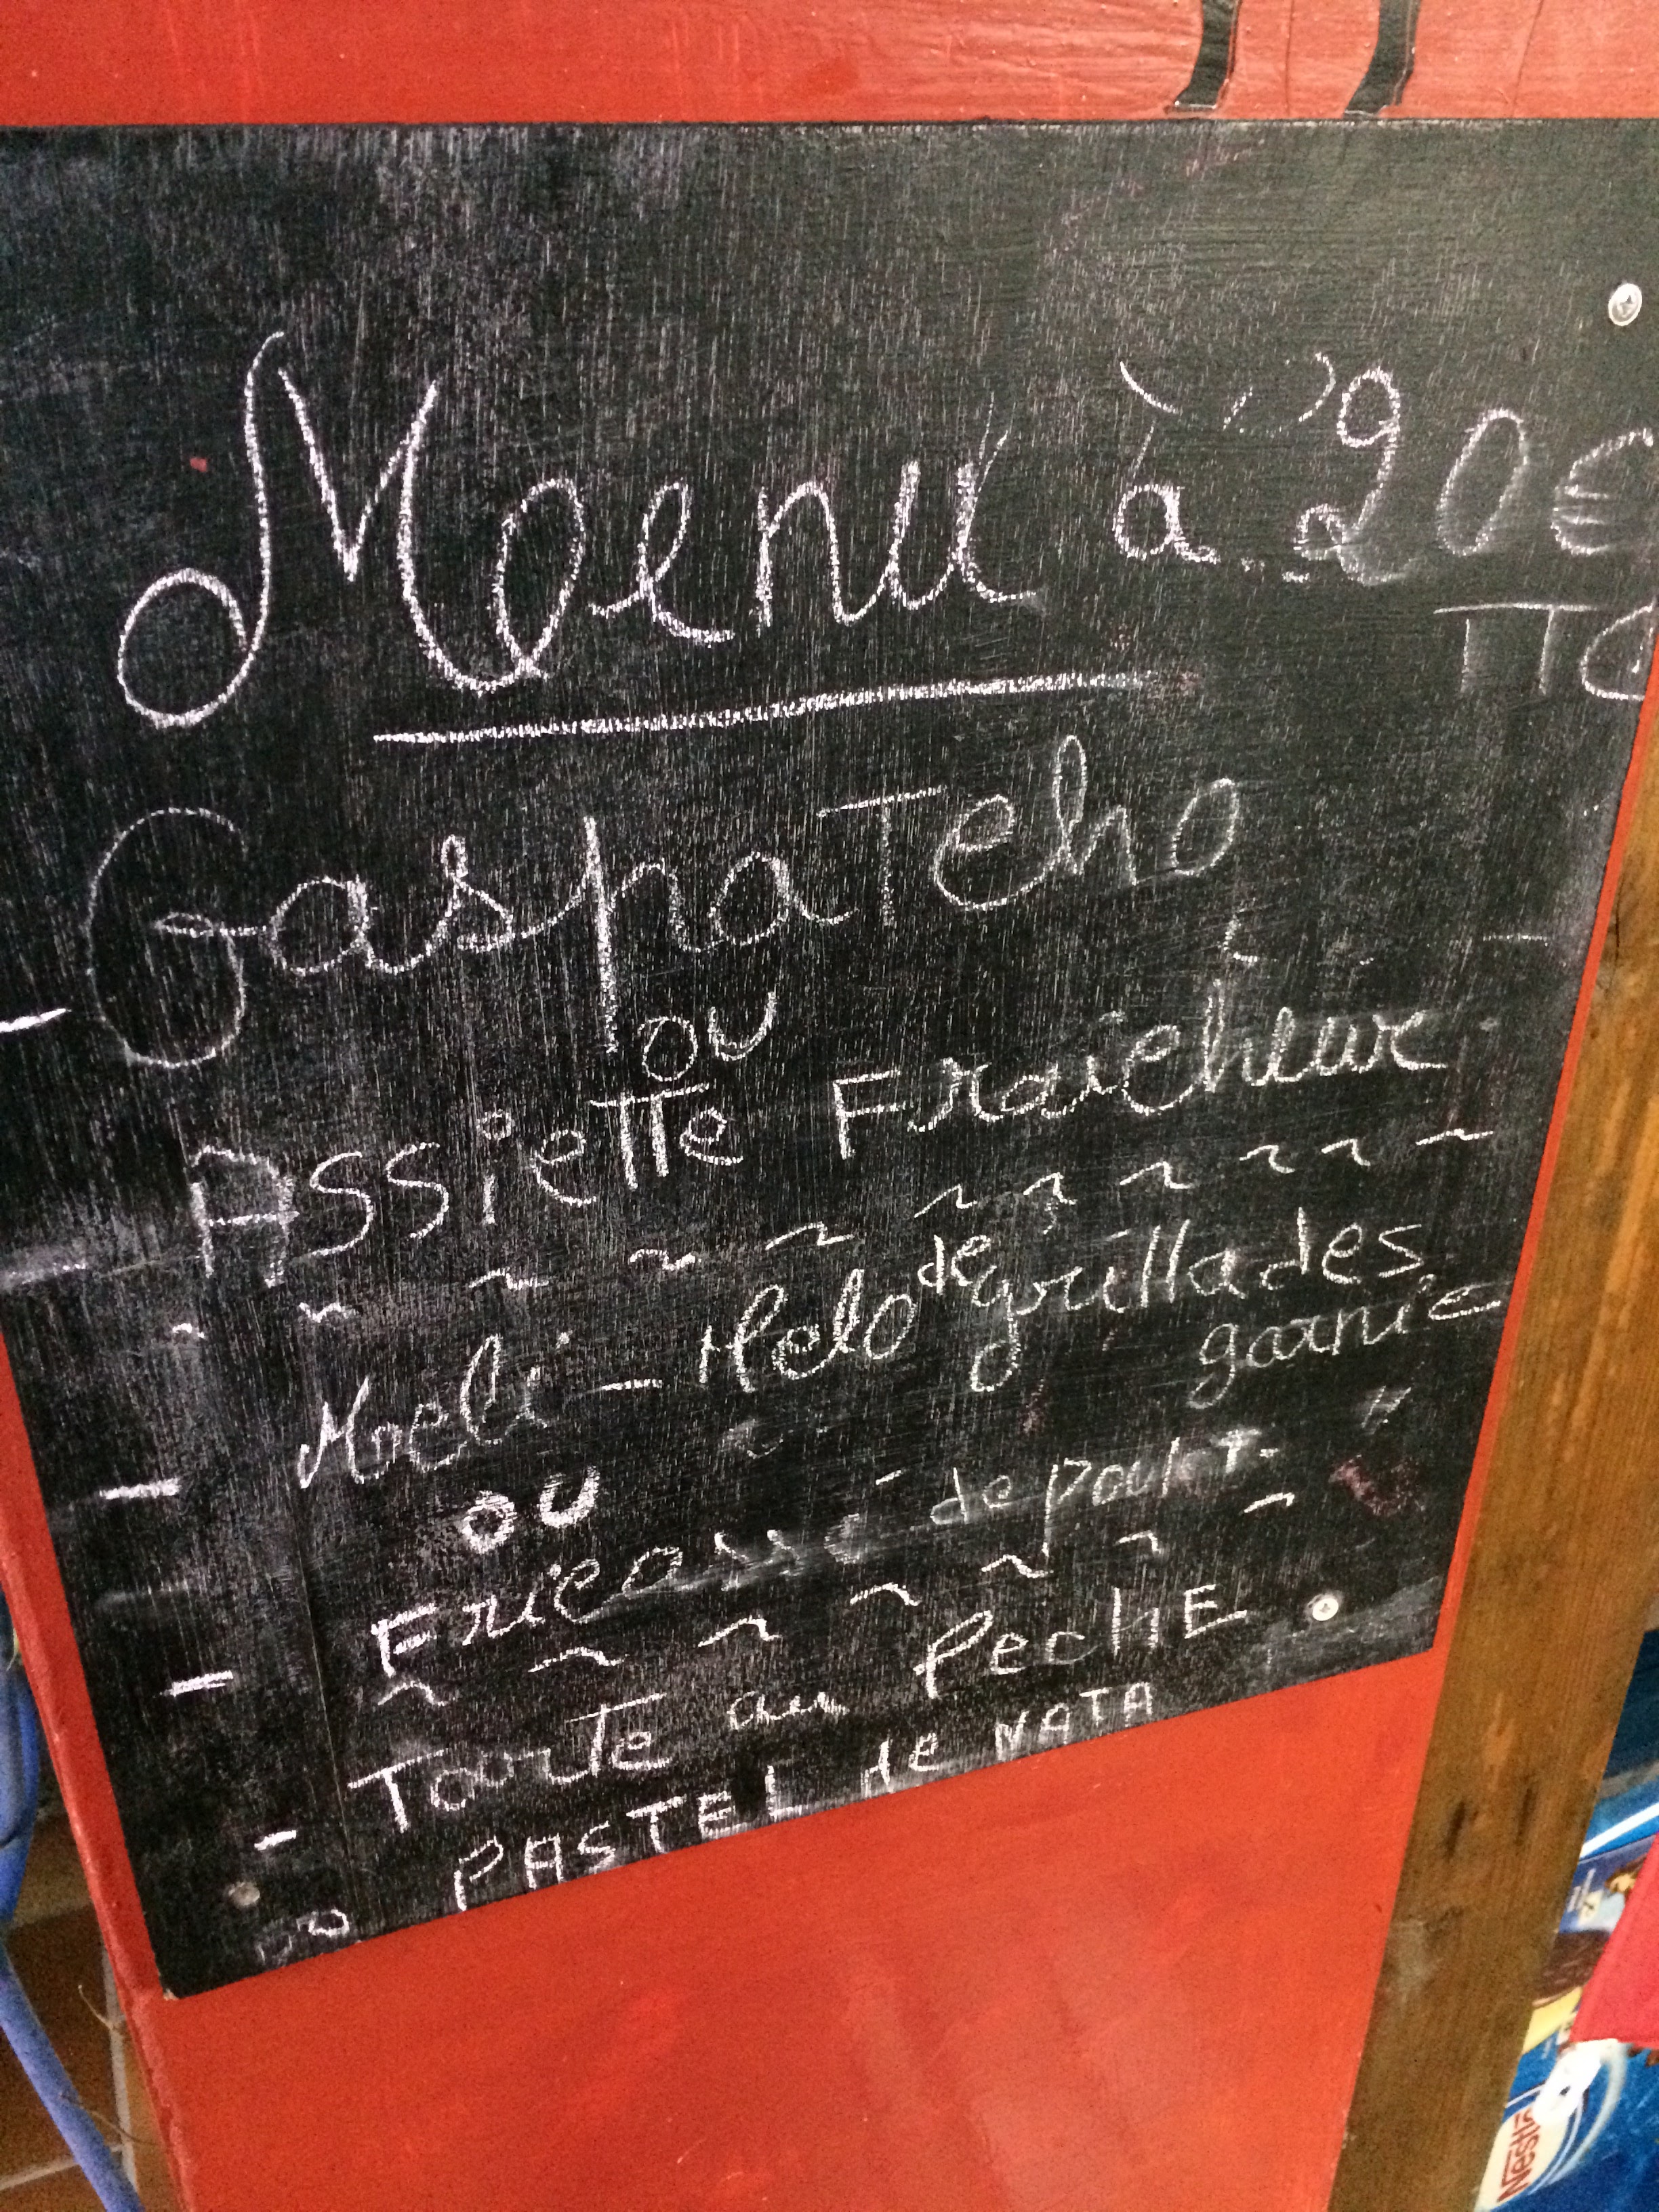 Menu à 20€
TTC
- GaspaTcho
ou
- Assiette Fraicheur
- Meli-Melo de grillades
garnie
ou
- Fricassé de poulet "
- Tarte au PechE
ou PASTEL de NATA
Nestlé